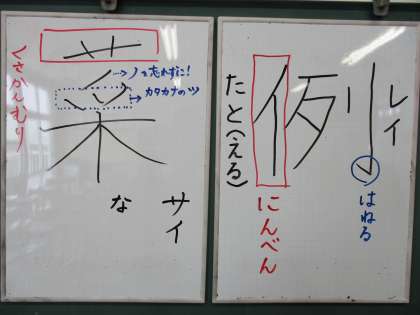 菜
くさかんむり
→ノを忘れずに!
→カタカナのツ
サイ
な
例
レイ
たと(える)
にんべん
はねる